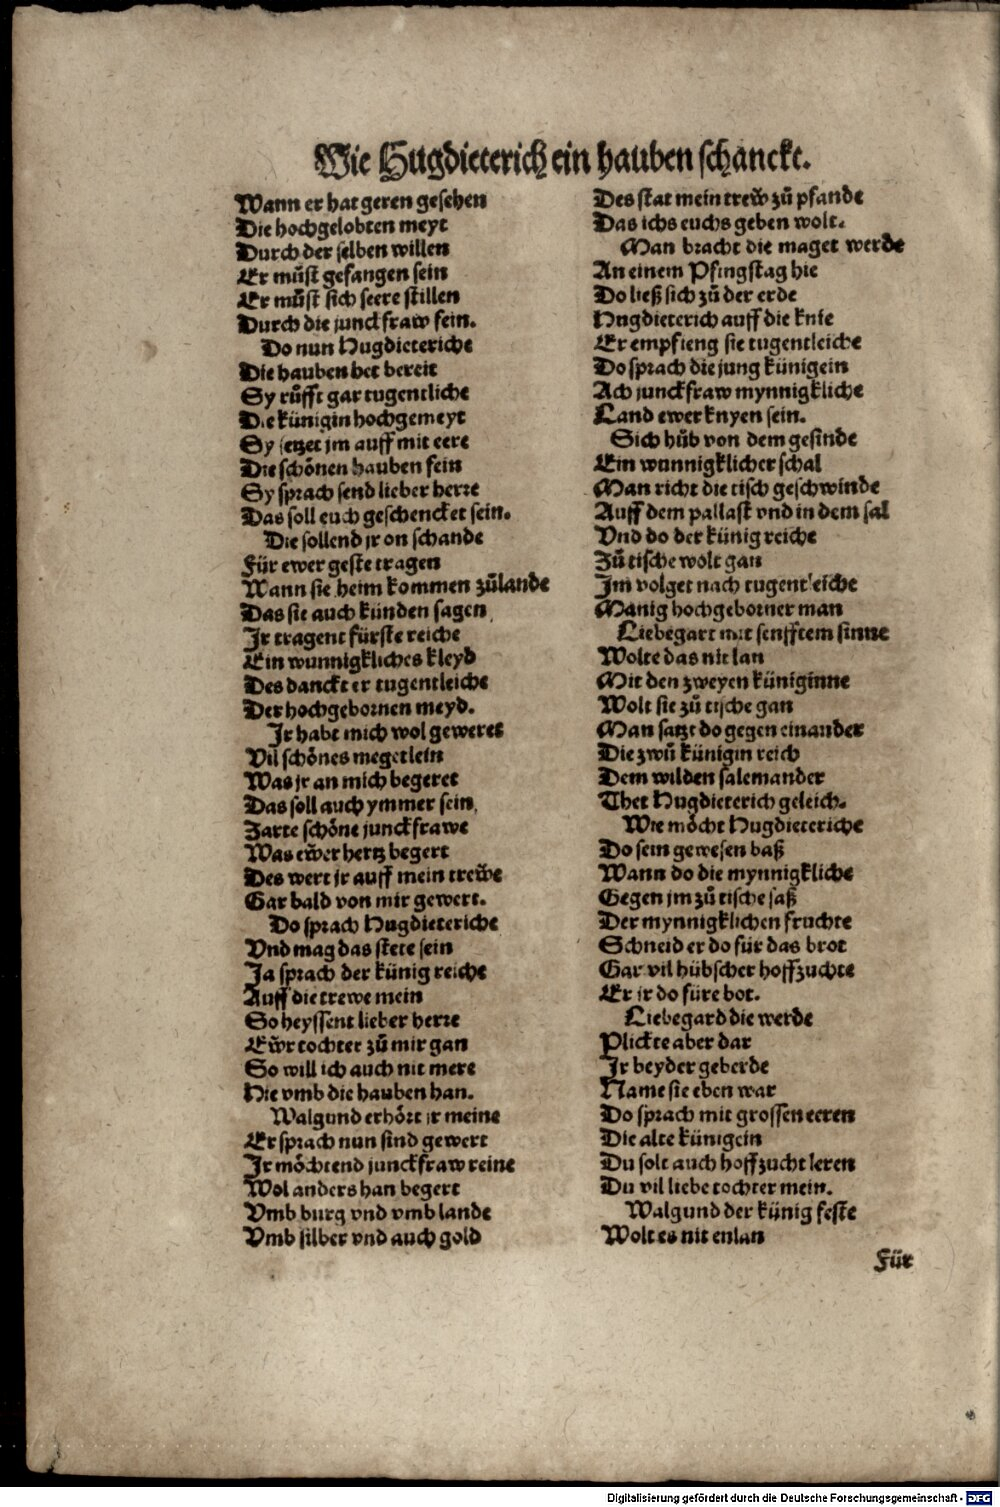 Wie Hugdieterich ein hauben schanckt.
Wann er hat geren gesehen
Die hochgelobten meyt
Durch der selben willen
Er můst gefangen sein
Er můst sich seere stillen
Durch die junckfraw fein.
Do nun Hugdieteriche
Die hauben het bereit
Sy růfft gar tugentliche
Die künigin hochgemeyt
Sy setzet jm auff mit eere
Die schönen hauben fein
Sy sprach send lieber herre
Das soll euch geschencket sein.
Die sollend jr on schande
Für ewer geste tragen
Wann sie heim kommen zůlande
Das sie auch künden sagen
Jr tragent fürste reiche
Ein wunnigkliches kleyd
Des danckt er tugentleiche
Der hochgebornen meyd.
Jr habt mich wol geweret
Vil schönes megetlein
Was jr an mich begeret
Das soll auch ymmer sein
Zarte schöne junckfrawe
Was ewer hertz begert
Des wert jr auff mein trewe
Gar bald von mir gewert.
Do sprach Hugdieteriche
Vnd mag das stete sein
Ja sprach der künig reiche
Auff die trewe mein
So heyssent lieber herre
Ewr tochter zů mir gan
So will ich auch nit mere
Hie vmb die hauben han.
Walgund erhört jr meine
Er sprach nun sind gewert
Jr möchtend junckfraw reine
Wol anders han begert
Vmb burg vnd vmb lande
Vmb silber vnd auch gold
Des stat mein trew zů pfande
Das ichs euchs geben wolt.
Man bracht die maget werde
An einem Pfingstag hie
Do ließ sich zů der erde
Hugdieterich auff die knie
Er empfieng sie tugentleiche
Do sprach die jung künigein
Ach junckfraw mynnigkliche
Land ewer knyen sein.
Sich hůb von dem gesinde
Ein wunnigklicher schal
Man richt die tisch geschwinde
Auff dem pallast vnd in dem sal
Vnd do der künig reiche
Zů tische wolt gan
Jm volget nach tugentleiche
Manig hochgeborner man
Liebegart mit senfftem sinne
Wolte das nit lan
Mit den zweyen küniginne
Wolt sie zů tische gan
Man satzt do gegen einander
Die zwů künigin reich
Dem wilden salemander
Thet Hugdieterich geleich.
Wie möcht Hugdieteriche
Do sein gewesen baß
Wann do die mynnigkliche
Gegen jm zů tische saß
Der mynnigklichen fruchte
Schneid er do für das brot
Gar vil hübscher hoffzuchte
Er jr do füre bot.
Liebegard die werde
Plickte aber dar
Jr beyder geberde
Name sie eben war
Do sprach mit grossen eeren
Die alte künigein
Du solt auch hoffzucht leren
Du vil liebe tochter mein.
Walgund der künig feste
Wolt es nit enlan
Für
Digitalisierung gefördert durch die Deutsche Forschungsgemeinschaft - DFG